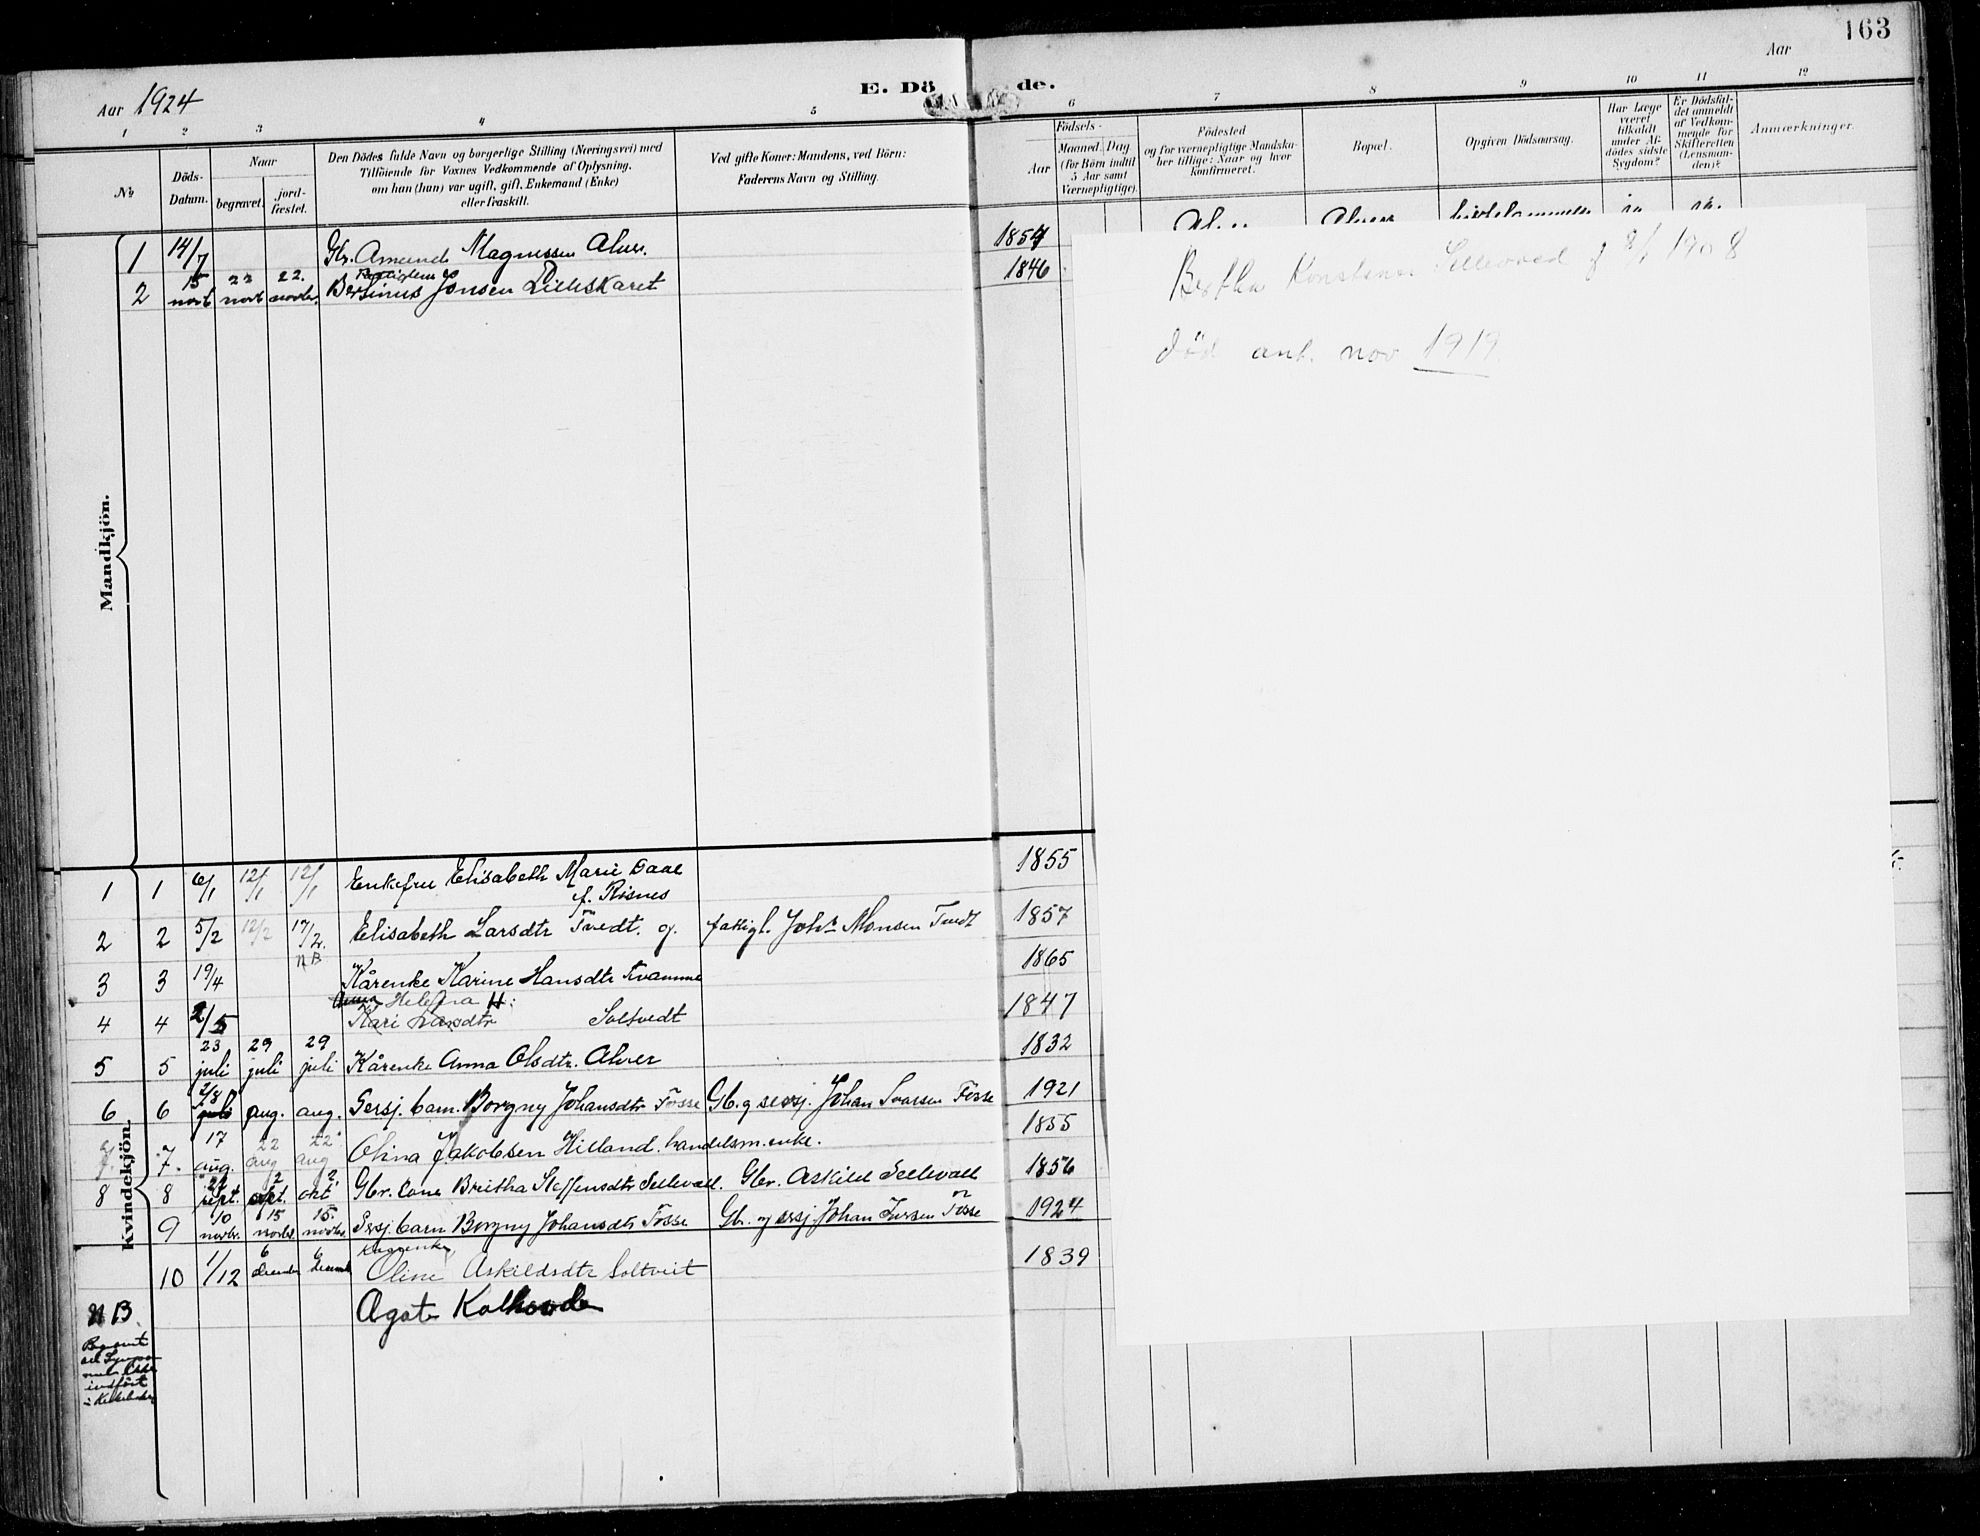 163
Aar 1924
E. Dö de.
Aar
1 2 3 4 5 6 7 8 9 10 11 12
№
Döds-Datum.
Naar
begravet.
jord-fæstet.
Den Dödes fulde Navn og borgerlige Stilling (Næringsvei) med
Tilföiende for Voxnes Vedkommende af Oplysning,
om han (hun) var ugift, gift, Enkemand (Enke)
eller fraskilt.
Ved gifte Koner: Mandens, ved Börn:
Faderens Navn og Stilling.
Födsels-
Aar
Maaned. Dag.
(for Börn indtil
5 Aar samt
Værnepligtige).
Födested
og for værnepligtige Mandska-
ber tillige: Naar og hvor
konfirmeret.
Bopæl.
Opgiven Dödsaarsag.
Har Læge
været
tilkaldt
under Af-
dödes sidste
Sygdom?
Er Dödsfal-
det anmeldt
af Vedkom-
mende for
Skifteretten
(Lensman-
den)?
Anmærkninger.
Mandkjön.
1 14/7 Gbr. Amund Magnussen Alver. 1854
2 15 novb 22 novb 22. novbr. Bersinus Jonsen Lilleskaret 1846
Bertha Sellevold f 2/1 1908
död ant. nov 1919.
Kvindekjön.
1 1 6/1 12/1 12/1 Enkefru Elisabeth Marie Daae 1855
f. Risnes
2 2 5/2 12/2 17/2. Elisabeth Larsdtr Tvedt. g. fattigl. Johs Monsen Tvedt 1857
NB
3 3 19/4 Kårenke Karine Hansdtr Kvamme 1865
4 4 2/5 Kari Larsdtr Soltvedt 1847
5 5 23 juli 29 juli 29 juli Kårenke Anna Olsdtr. Alver 1832
6 6 2/8 aug. aug. Sersj. barn. Borgny Johansdtr Fosse Gb. g sersj. Johan Ivarsen Fosse 1921
7. 7. 17 aug. 22 aug 22 aug Olina Jakobsen Hilland. handelsm.enke. 1855
8 8 27 sept. 2 okt. 2 okt Gbr. Cone Britha Steffensdtr Sellevold. Gbr. Askild Sellevold 1856
9 10 novbr. 15 novbr. 15. novbr. Sersj. barn Borgny Johansdtr Fosse Gb. og sersj Johan Iversen Fosse 1924
10 1/12 6 december 6 decemb Kaarenke Oline Askildsdtr Soltveit 1839
NB. Agate